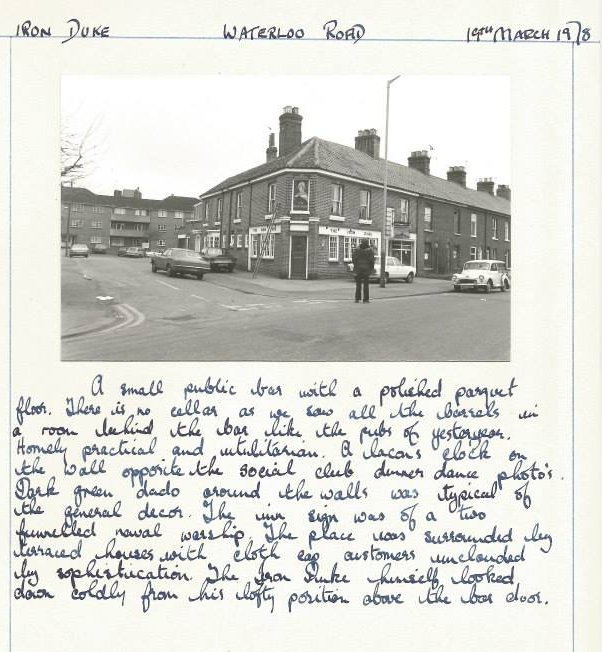 IRON DUKE WATERLOO ROAD 19TH MARCH 1978
THE IRON DUKE
A small public bar with a polished parquet
floor. There is no cellar as we saw all the barrels in
a room behind the bar like the pubs of yesteryear.
Homely practical and utulitarian. A lacons clock on
the wall opposite the social club dinner dance photo's.
Dark green dado around the walls was typical of
the general decor. The inn sign was of a two
funnelled naval warship. The place was surrounded by
terraced houses with cloth cap customers unclouded
by sophistication. The Iron Duke himself looked
down coldly from his lofty position above the bar door.